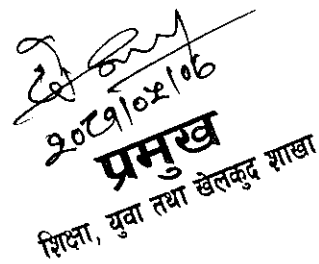 २०८१।०५।०६
प्रमुख
शिक्षा, युवा तथा खेलकुद शाखा